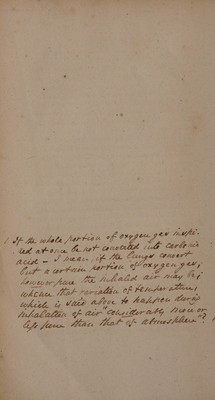 If the whole portion of oxygen gas inspi-
red at once be not converted into carbonic
acid - I mean, if the lungs convert
but a certain portion of oxygen gas,
however pure the inhaled air may be;
whether that variation of temperature,
which is said above to happen during
inhalation of air "considerably more or
less pure than that of atmosphere"?